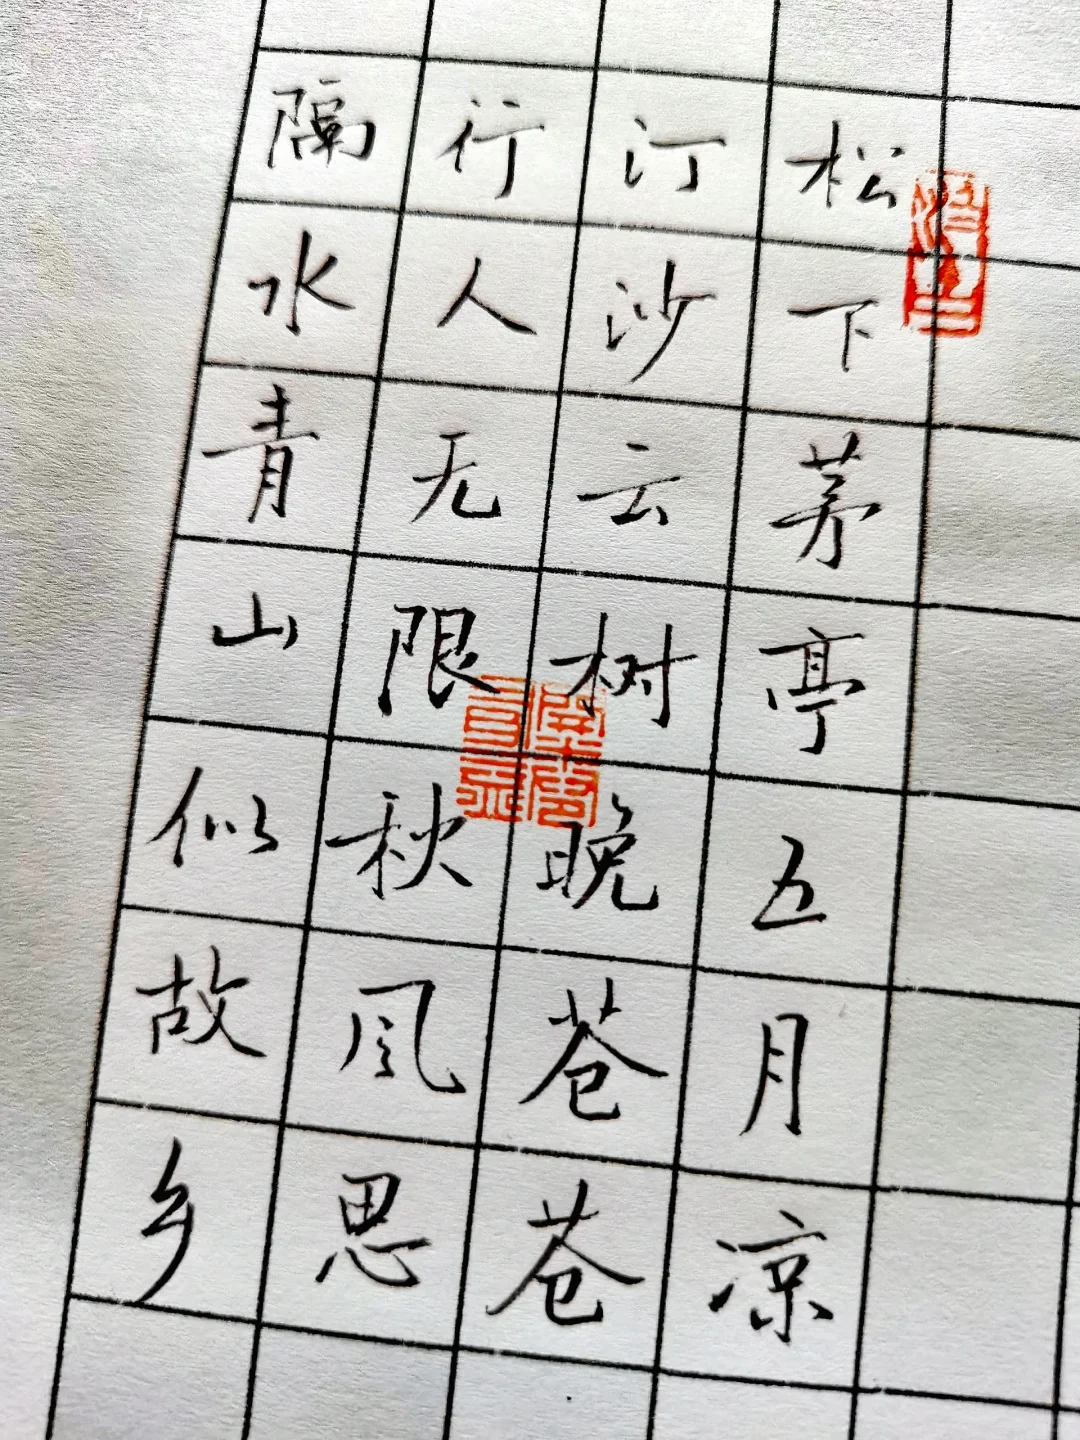 松下茅亭五月凉
汀沙云树晚苍苍
行人无限秋风思
隔水青山似故乡